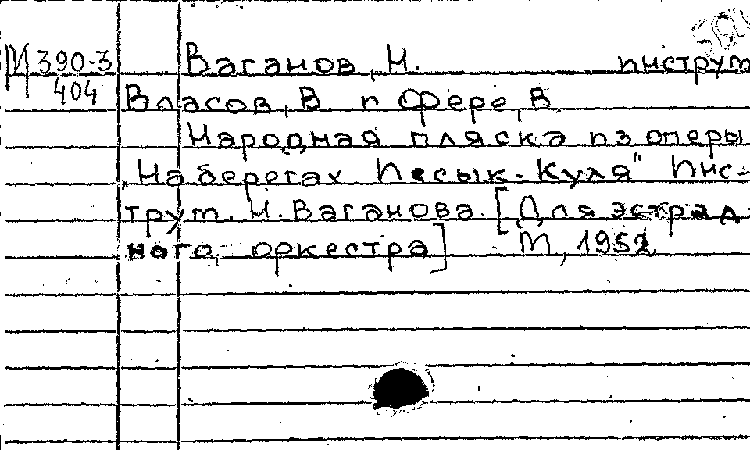 М 390-3 Ваганов, Н. инструм
404 Власов, В и Фере, В
Народная пляска из оперы
„На берегах Иссык-Куля" Инс-
трум. Н. Ваганова. [Для эстрад-
ного оркестра] М, 1952